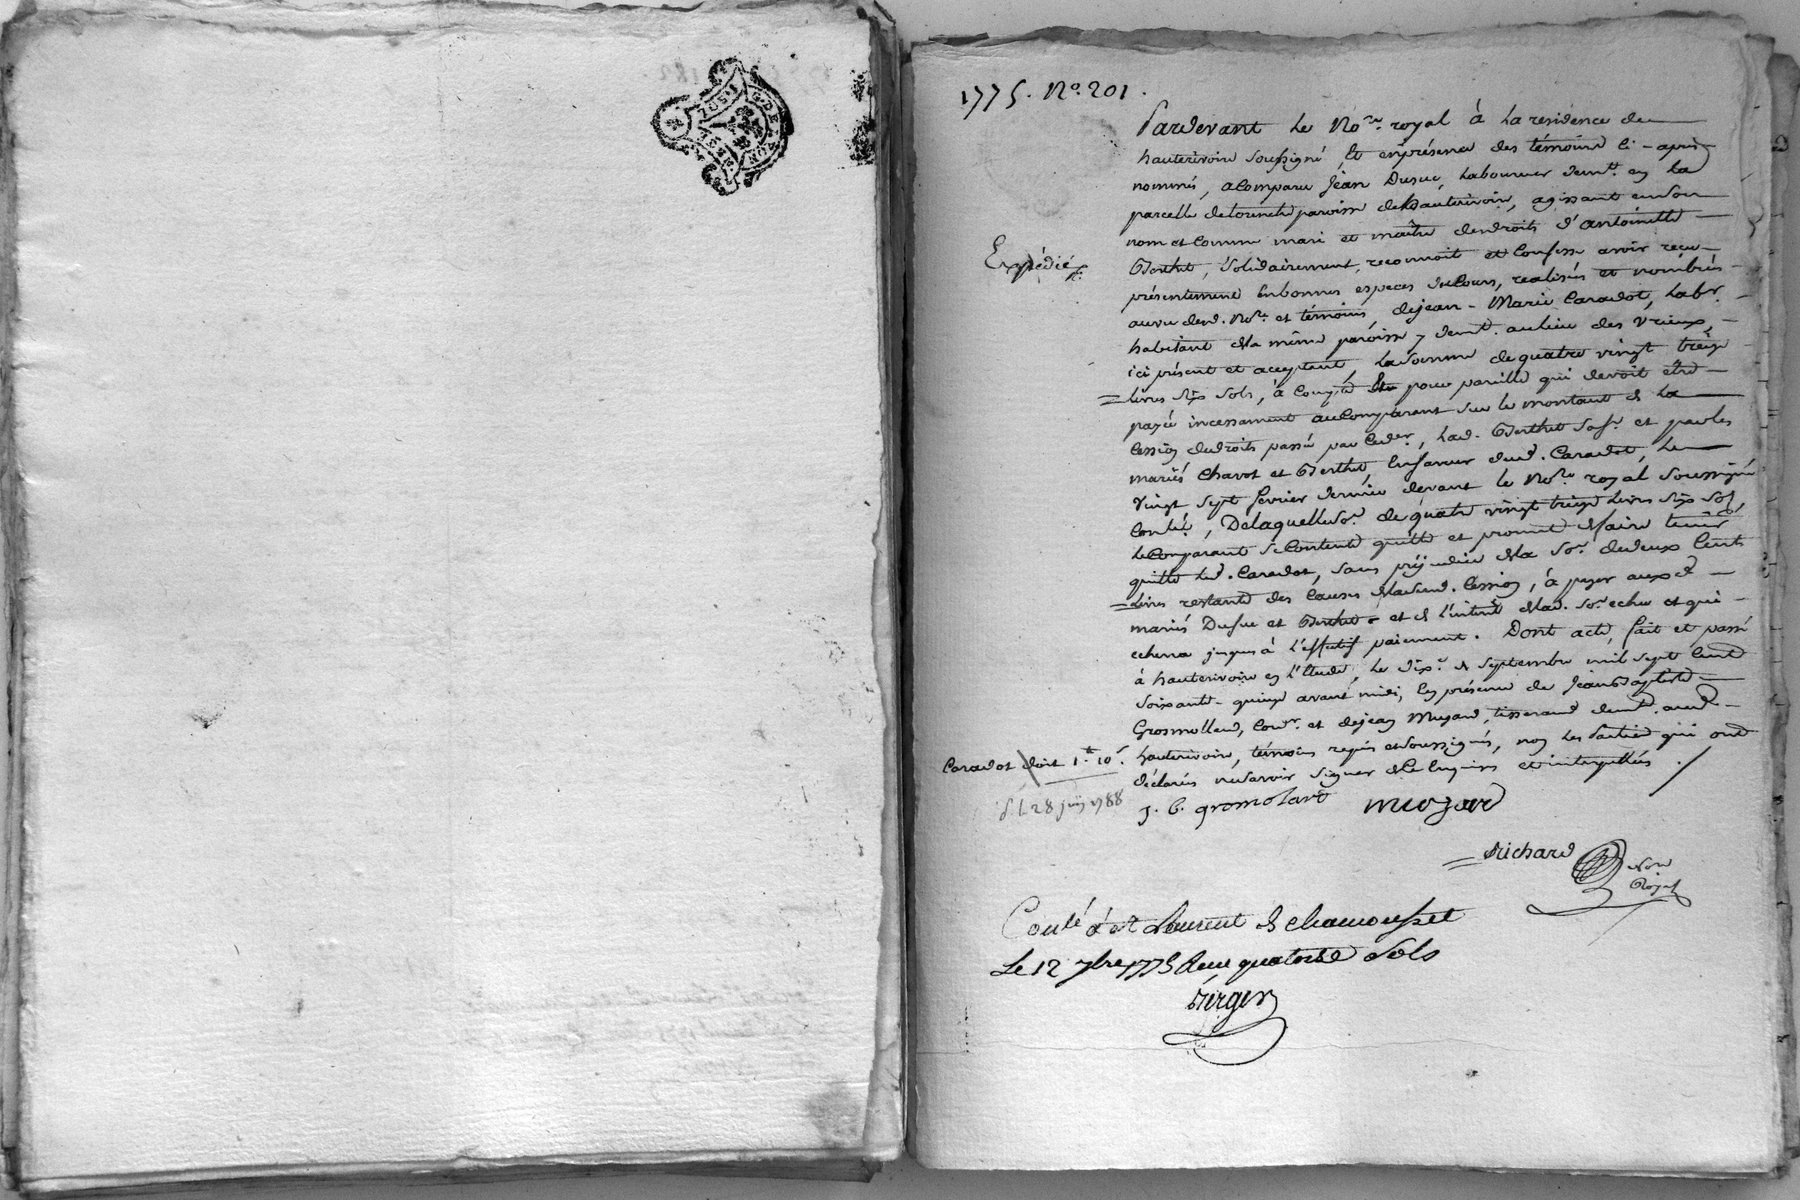 1775. No. 201.
Pardevant le Nore. royal à la résidence de
hauterivoire soussigné, Et en présence des témoins ci-après
nommés, a Comparu Jean Dusuc, laboureur demt. en la
parcelle de paroisse de hauterivoire, agissant en son
nom et Comme mari et maître des droits d'antoinette
Expédié
Berthet, solidairement, reconnoit et Confesse avoir reçu
présentement En bonnes especes de Cours, realisés et nombrés
au vu dud. Nore. et témoins, de jean-Marie Caradot, labr.
habitant de la même paroisse, demt. au lieu des Vrieux,
ici présent et acceptant, la somme de quatre vingt treize
livres six sols, à Compte pour pareille qui devoit être
payée incessament au Comparant sur le montant de la
Cession de droits passée par led. lad. Berthet sa fe. et par les
mariés Chavot et Berthet, En faveur dud. Caradot, le
Vingt sept fevrier dernier devant le Nore. royal soussigné
Conlé, De laquelle so. de quatre vingt treize livres six sols
le Comparant se Contente quitte et promet de faire tenir
quitte led. Caradot, sans préjudice de la so. de deux Cents
livres restante des Causes de la susd. Cession, à payer auxd.
mariés Dusuc et Berthet et de l'intérêt de lad. so. echu et qui
echerra jusques à l'effectif paiement. Dont acte, fait et passé
à hauterivoire en l'Etude, le dix. de septembre mil sept Cent
soixante-quinze avant midi, En présence de Jean Baptiste
Grosmollard, Cor. et de jean Muzard, tisserand demt. aud.
hauterivoire, témoins requis et soussignés, non les parties qui ont
Caradot doit 1# 10s.
déclarés ne savoir signer de Ce Enquis et interpellés.
d. l. 28 juin 1788
J. B. gromolard muzard
Richard Nore
Royal
Conlé à st Laurent de chamousset
Le 12 7bre 1775 Reçu quatorze sols